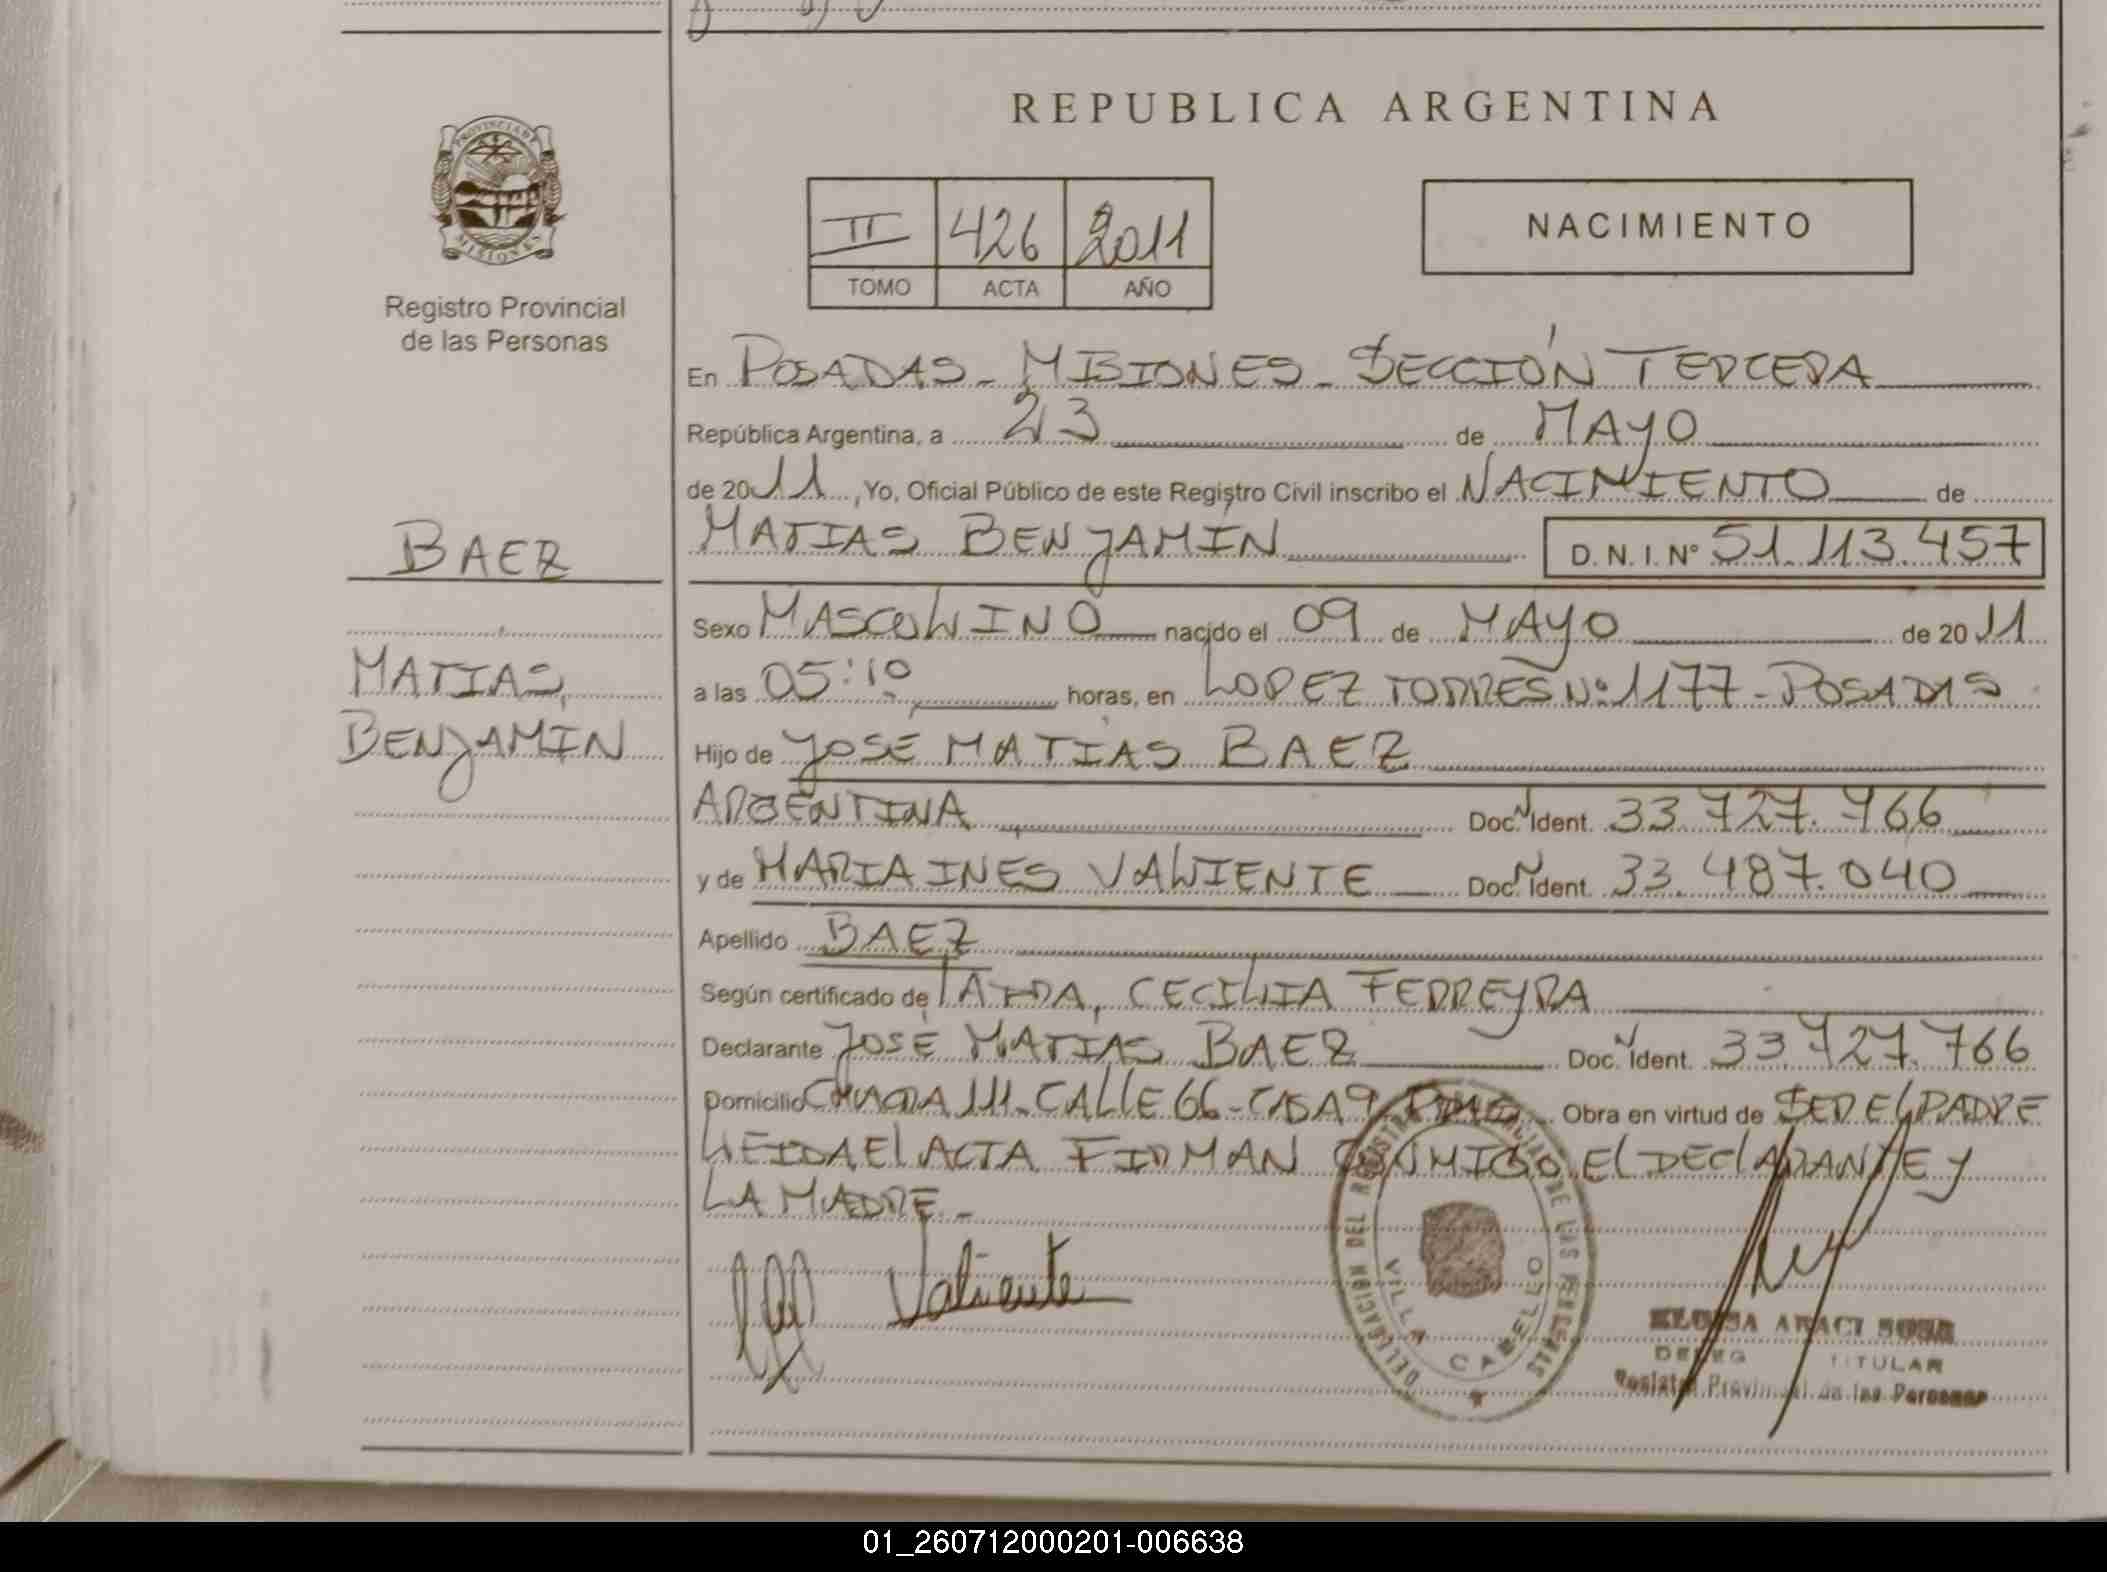 REPUBLICA ARGENTINA
PROVINCIA DE
MISIONES
Registro Provincial
de las Personas
II 426 2011
TOMO ACTA AÑO
NACIMIENTO
En POSADAS - MISIONES - SECCIÓN TERCERA
República Argentina, a 23 de MAYO
de 2011, Yo, Oficial Público de este Registro Civil inscribo el NACIMIENTO de
BAEZ
MATIAS BENJAMIN D.N.I. Nº 51.113.457
Sexo MASCULINO nacido el 09 de MAYO de 2011
MATIAS,
a las 05:10 horas, en LOPEZ TORRES Nº 1177 - POSADAS
BENJAMIN
Hijo de JOSE MATIAS BAEZ
ARGENTINA Doc. Ident. 33.727.766
y de MARIA INES VALIENTE Doc. Ident. 33.487.040
Apellido BAEZ
Según certificado de CECILIA FERREYRA
Declarante JOSÉ MATIAS BAEZ Doc. Ident. 33.727.766
Domicilio CHACRA 111 - CALLE 66 - CASA 9 Obra en virtud de SER EL PADRE
LEIDA EL ACTA FIRMAN CONMIGO EL DECLARANTE Y
LA MADRE. -
Valiente
DELEGACION DEL REGISTRO PROVINCIAL DE LAS PERSONAS
VILLA CABELLO
ELOISA ARACI SOSA
TITULAR
Registro Provincial de las Personas
01_260712000201-006638